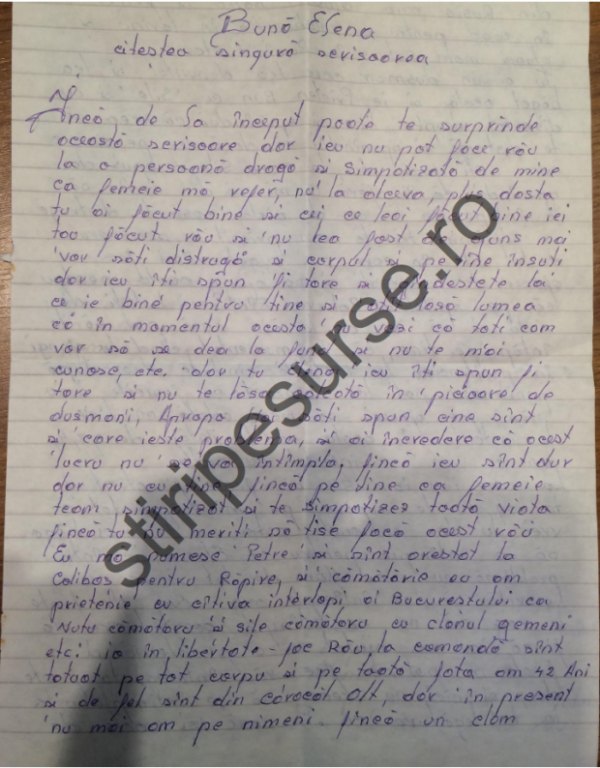 Bună Elena
citeștea singură scrisoarea
Încă de la început poate te surprinde
această scrisoare dar ieu nu pot face rău
la o persoană dragă si simpatizată de mine
ca femeie mă refer, nu la altceva, plus dasta
tu ai făcut bine si cei ce leai făcut bine iei
tau făcut rău si nu lea fost de ajuns mai
vor săti distrugă si corpul si pe tine însuti
dar ieu îti spun fi tare si gîndestete la
ce ie bine pentru tine si lasă lumea
că în momentul acesta vezi că toti cam
vor să se dea la fund si nu te mai
cunosc, etc. dar tu Elena ieu îti spun fi
tare si nu te lăsa călcată în picioare de
dusmani, Apropo săti spun cine sînt
si care ieste problema, si ai încredere că acest
lucru nu se va întîmpla, fincă ieu sînt dur
dar nu cu tine fincă pe tine ca femeie
team simpatizat si te simpatizez toată viata
fincă tu nu meriti să tise facă acest rău
Eu mă numesc Petre si sînt arestat la
Calibas pentru Răpire, si cămătărie eu am
prietenie cu cîtiva interlopi ai Bucurestului ca
Nutu cămătaru si sile cămătaru cu clanul gemeni
etc; io în libertate-fac Rău la comandă sînt
tatuat pe tot corpu si pe toată fata am 42 Ani
si de fel sînt din caracăl Olt, dar în present
nu mai am pe nimeni fincă un clam
stiripesurse.ro